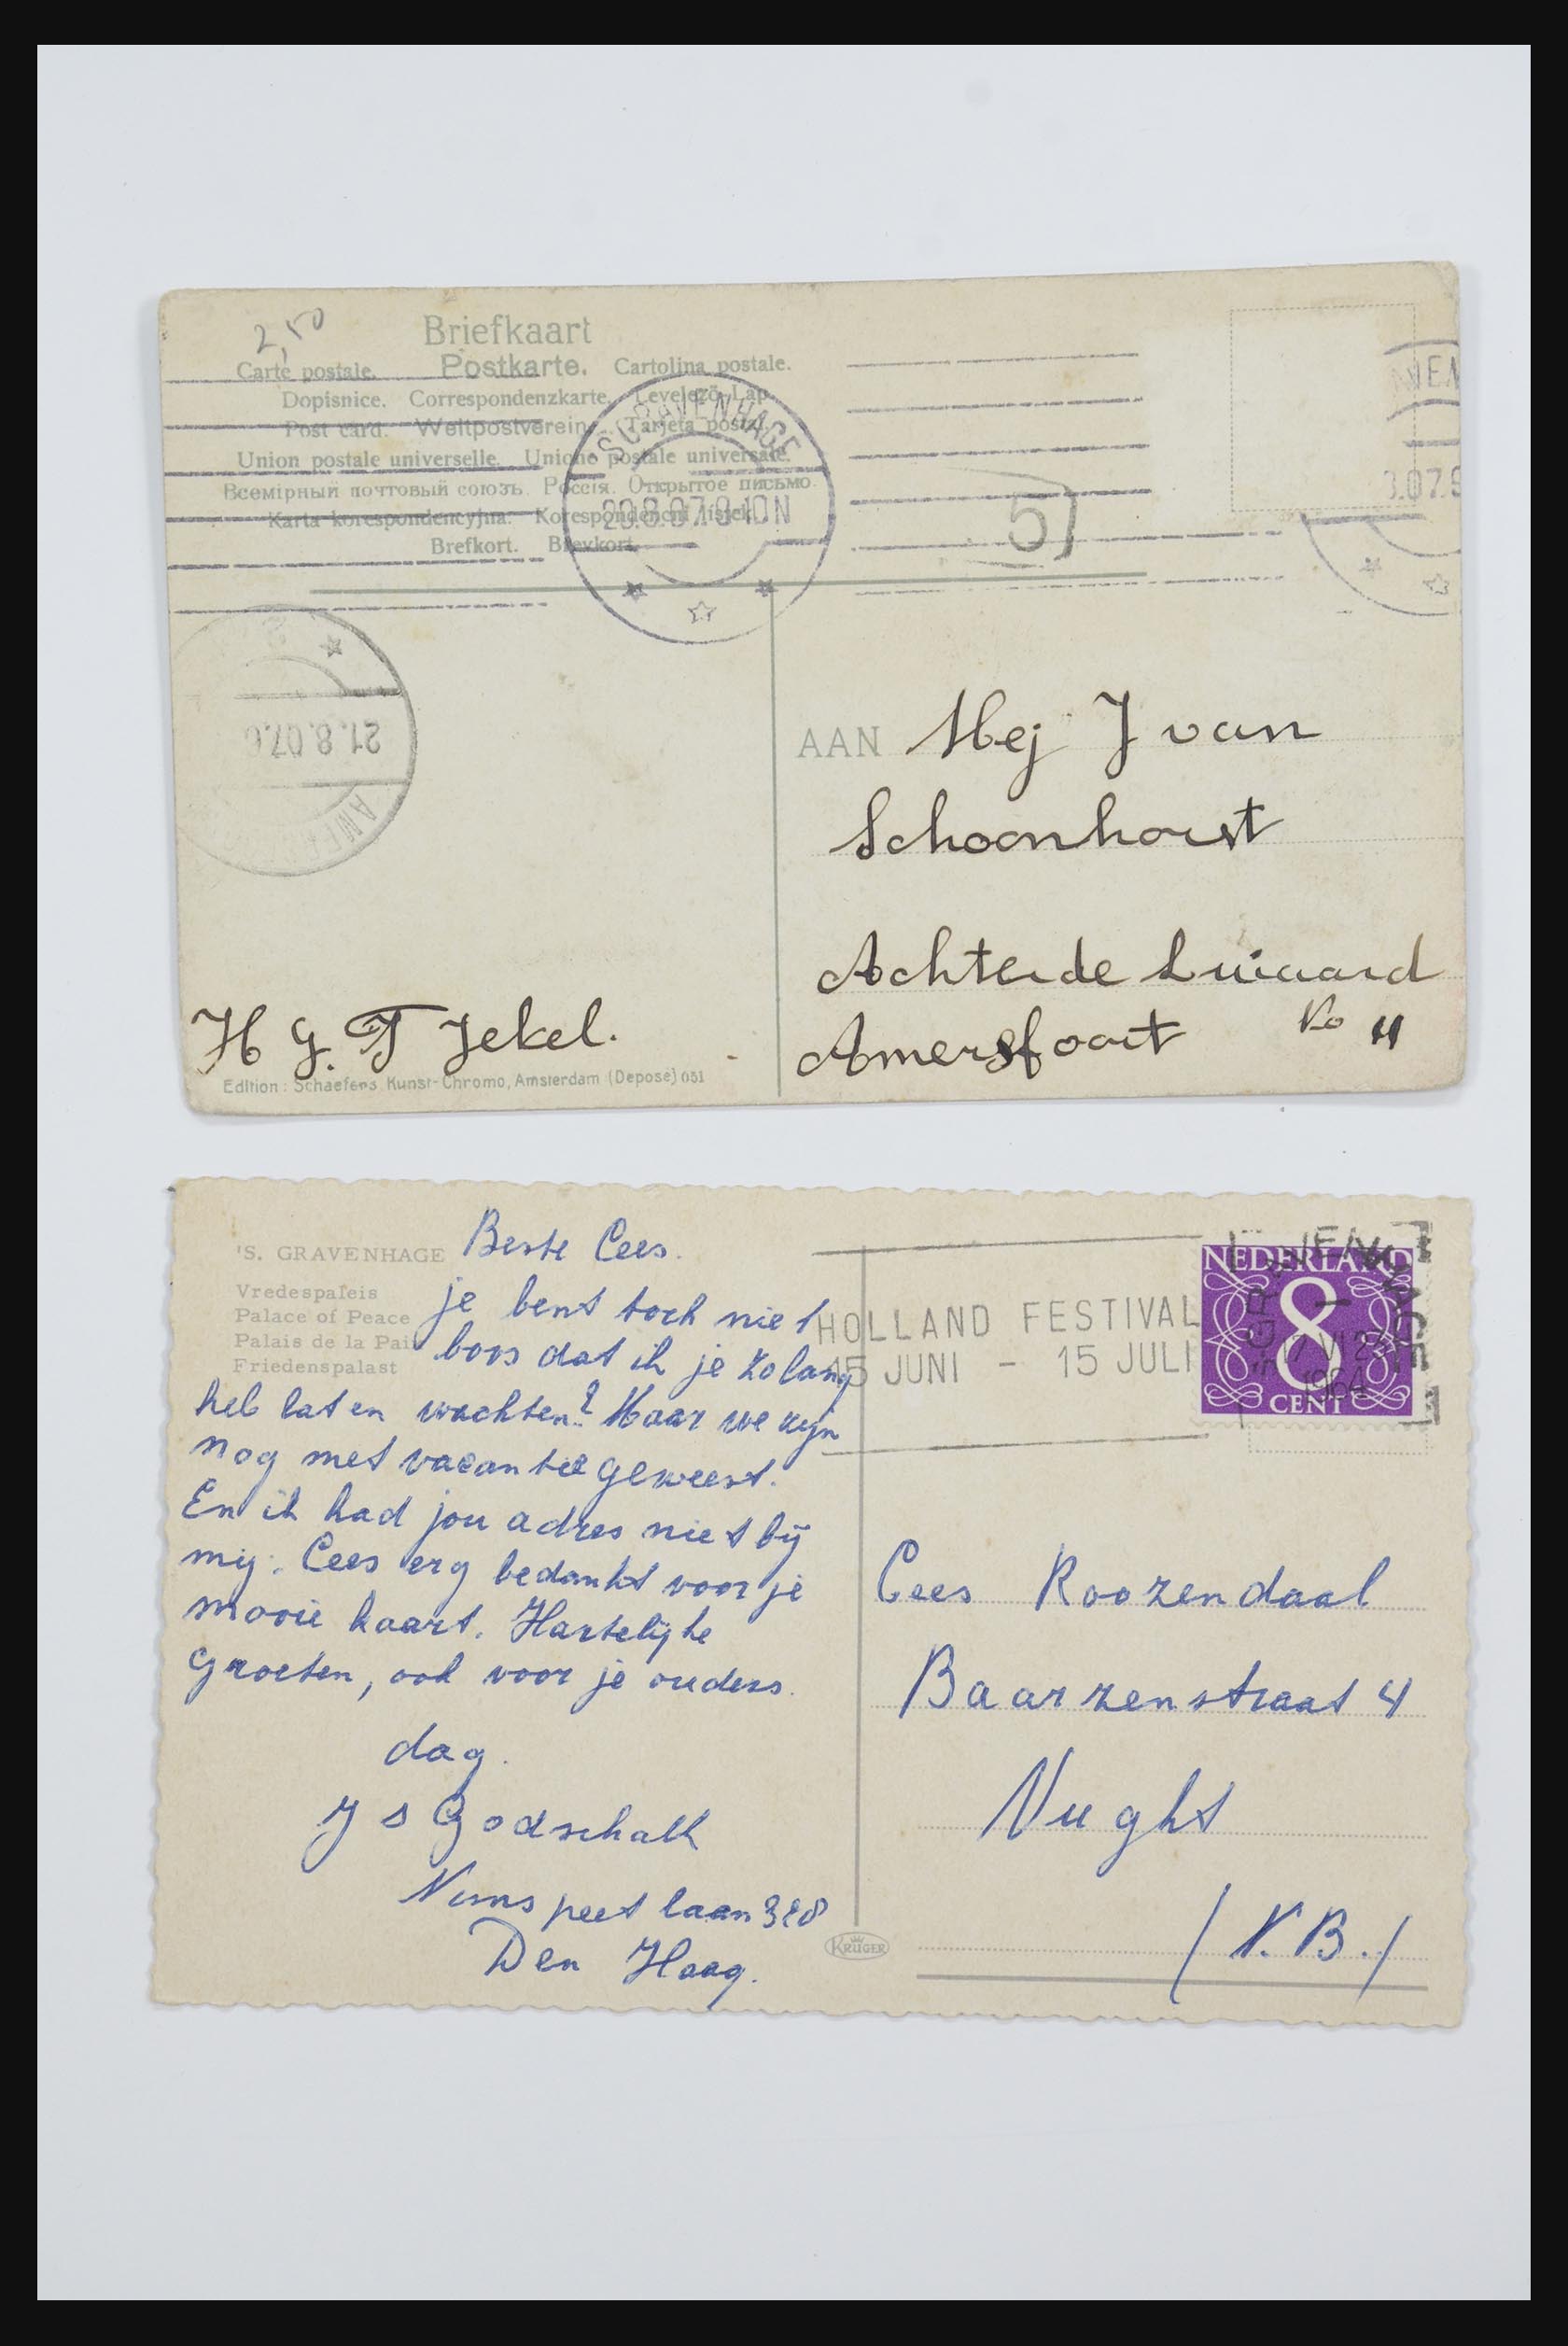 2,50
Briefkaart
Carte postale. Postkarte. Cartolina postale.
Dopisnice. Correspondenzkarte. Levelező-Lap.
Post card. Weltpostverein. Tarjeta postal.
Union postale universelle. Unione postale universale.
Всемірный почтовый союзъ. Россія. Открытое письмо.
Karta korespondencyjna. Korespondenčni listek.
Brefkort. Brevkort.
'S GRAVENHAGE
20.8.07.9-10N
5
VEN
3.07.9
21.8.07.6
AME
AAN Mej J van
Schoonhorst
Achter de Luiaard
Amersfoort No 11
H G. T Jekel.
Edition: Schaefers Kunst-Chromo, Amsterdam (Deposé) 051
'S. GRAVENHAGE
Vredespaleis
Palace of Peace
Palais de la Paix
Friedenspalast
Beste Cees.
je bent toch niet
boos dat ik je zo lang
heb laten wachten? Maar we zijn
nog met vacantie geweest.
En ik had jou adres niet bij
mij. Cees erg bedankt voor je
mooie kaart. Hartelijke
Groeten, ook voor je ouders.
dag.
J S Godschalk
Nunspeetlaan 328
Den Haag.
HOLLAND FESTIVAL
15 JUNI - 15 JULI
NEDERLAND
8
CENT
'S GRAVENHAGE
17 VI 23
1964
Cees Roozendaal
Baarzenstraat 4
Vught
(N.B.)
KRÜGER